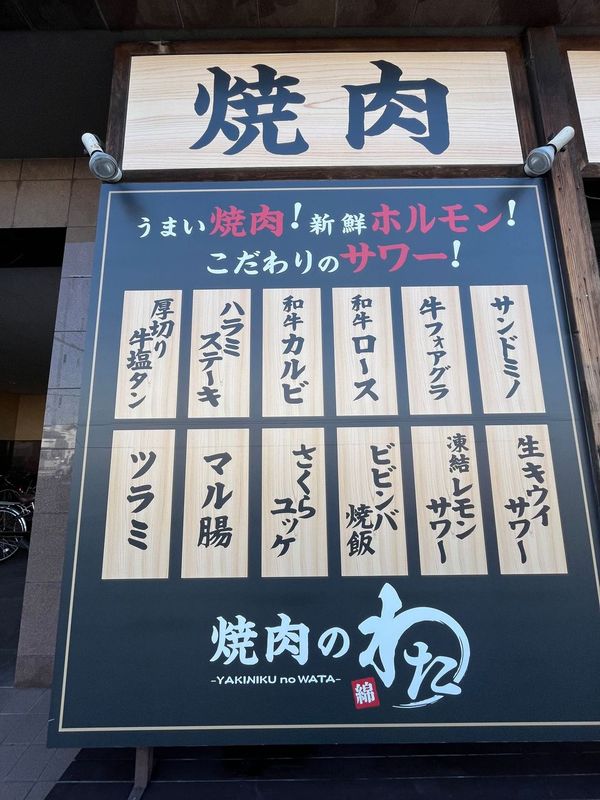 焼肉
うまい焼肉!新鮮ホルモン!
こだわりのサワー!
サンドミノ
牛フォアグラ
和牛ロース
和牛カルビ
ハラミ
ステーキ
厚切り
牛塩タン
生キウイ
サワー
凍結レモン
サワー
ビビンバ
焼飯
さくら
ユッケ
マル腸
ツラミ
焼肉のわた
-YAKINIKU no WATA-
綿